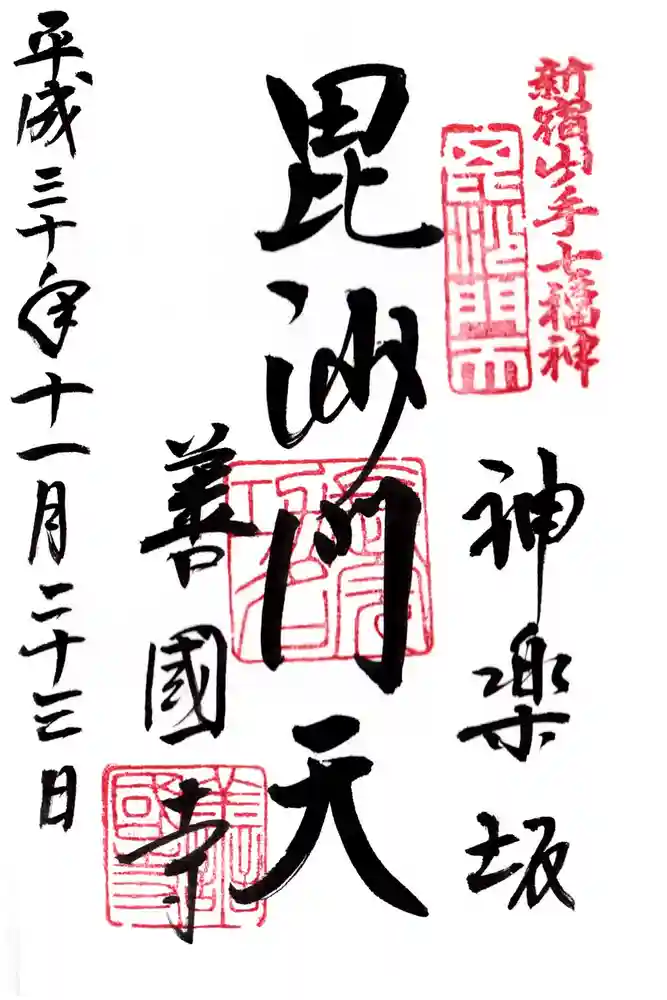 新宿山手七福神
毘沙門天
神楽坂
毘沙門天
善國寺
平成三十年十一月二十三日